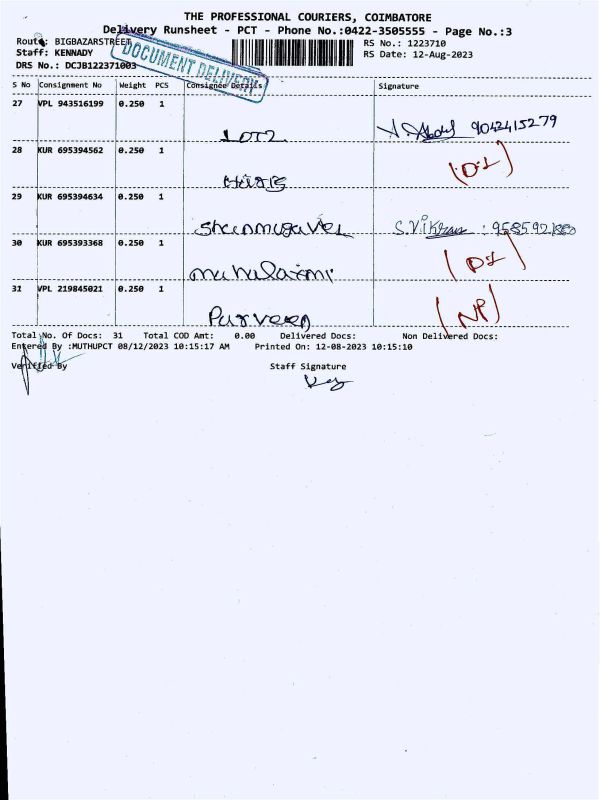 THE PROFESSIONAL COURIERS, COIMBATORE
Delivery Runsheet - PCT - Phone No.:0422-3505555 - Page No.:3
Route: BIGBAZARSTREET RS No.: 1223710
Staff: KENNADY RS Date: 12-Aug-2023
DRS No.: DCJB122371003
DOCUMENT DELIVERY
S No Consignment No Weight PCS Consignee Details Signature
27 VPL 943516199 0.250 1
LOTZ 9042415279
28 KUR 695394562 0.250 1
(D.L)
29 KUR 695394634 0.250 1
Shanmugavel S.Vikram : 
30 KUR 695393368 0.250 1
mahalaxmi (DL)
31 VPL 219845021 0.250 1
Parveen (NP)
Total No. Of Docs: 31 Total COD Amt: 0.00 Delivered Docs: Non Delivered Docs:
Entered By :MUTHUPCT 08/12/2023 10:15:17 AM Printed On: 12-08-2023 10:15:10
Verified By Staff Signature